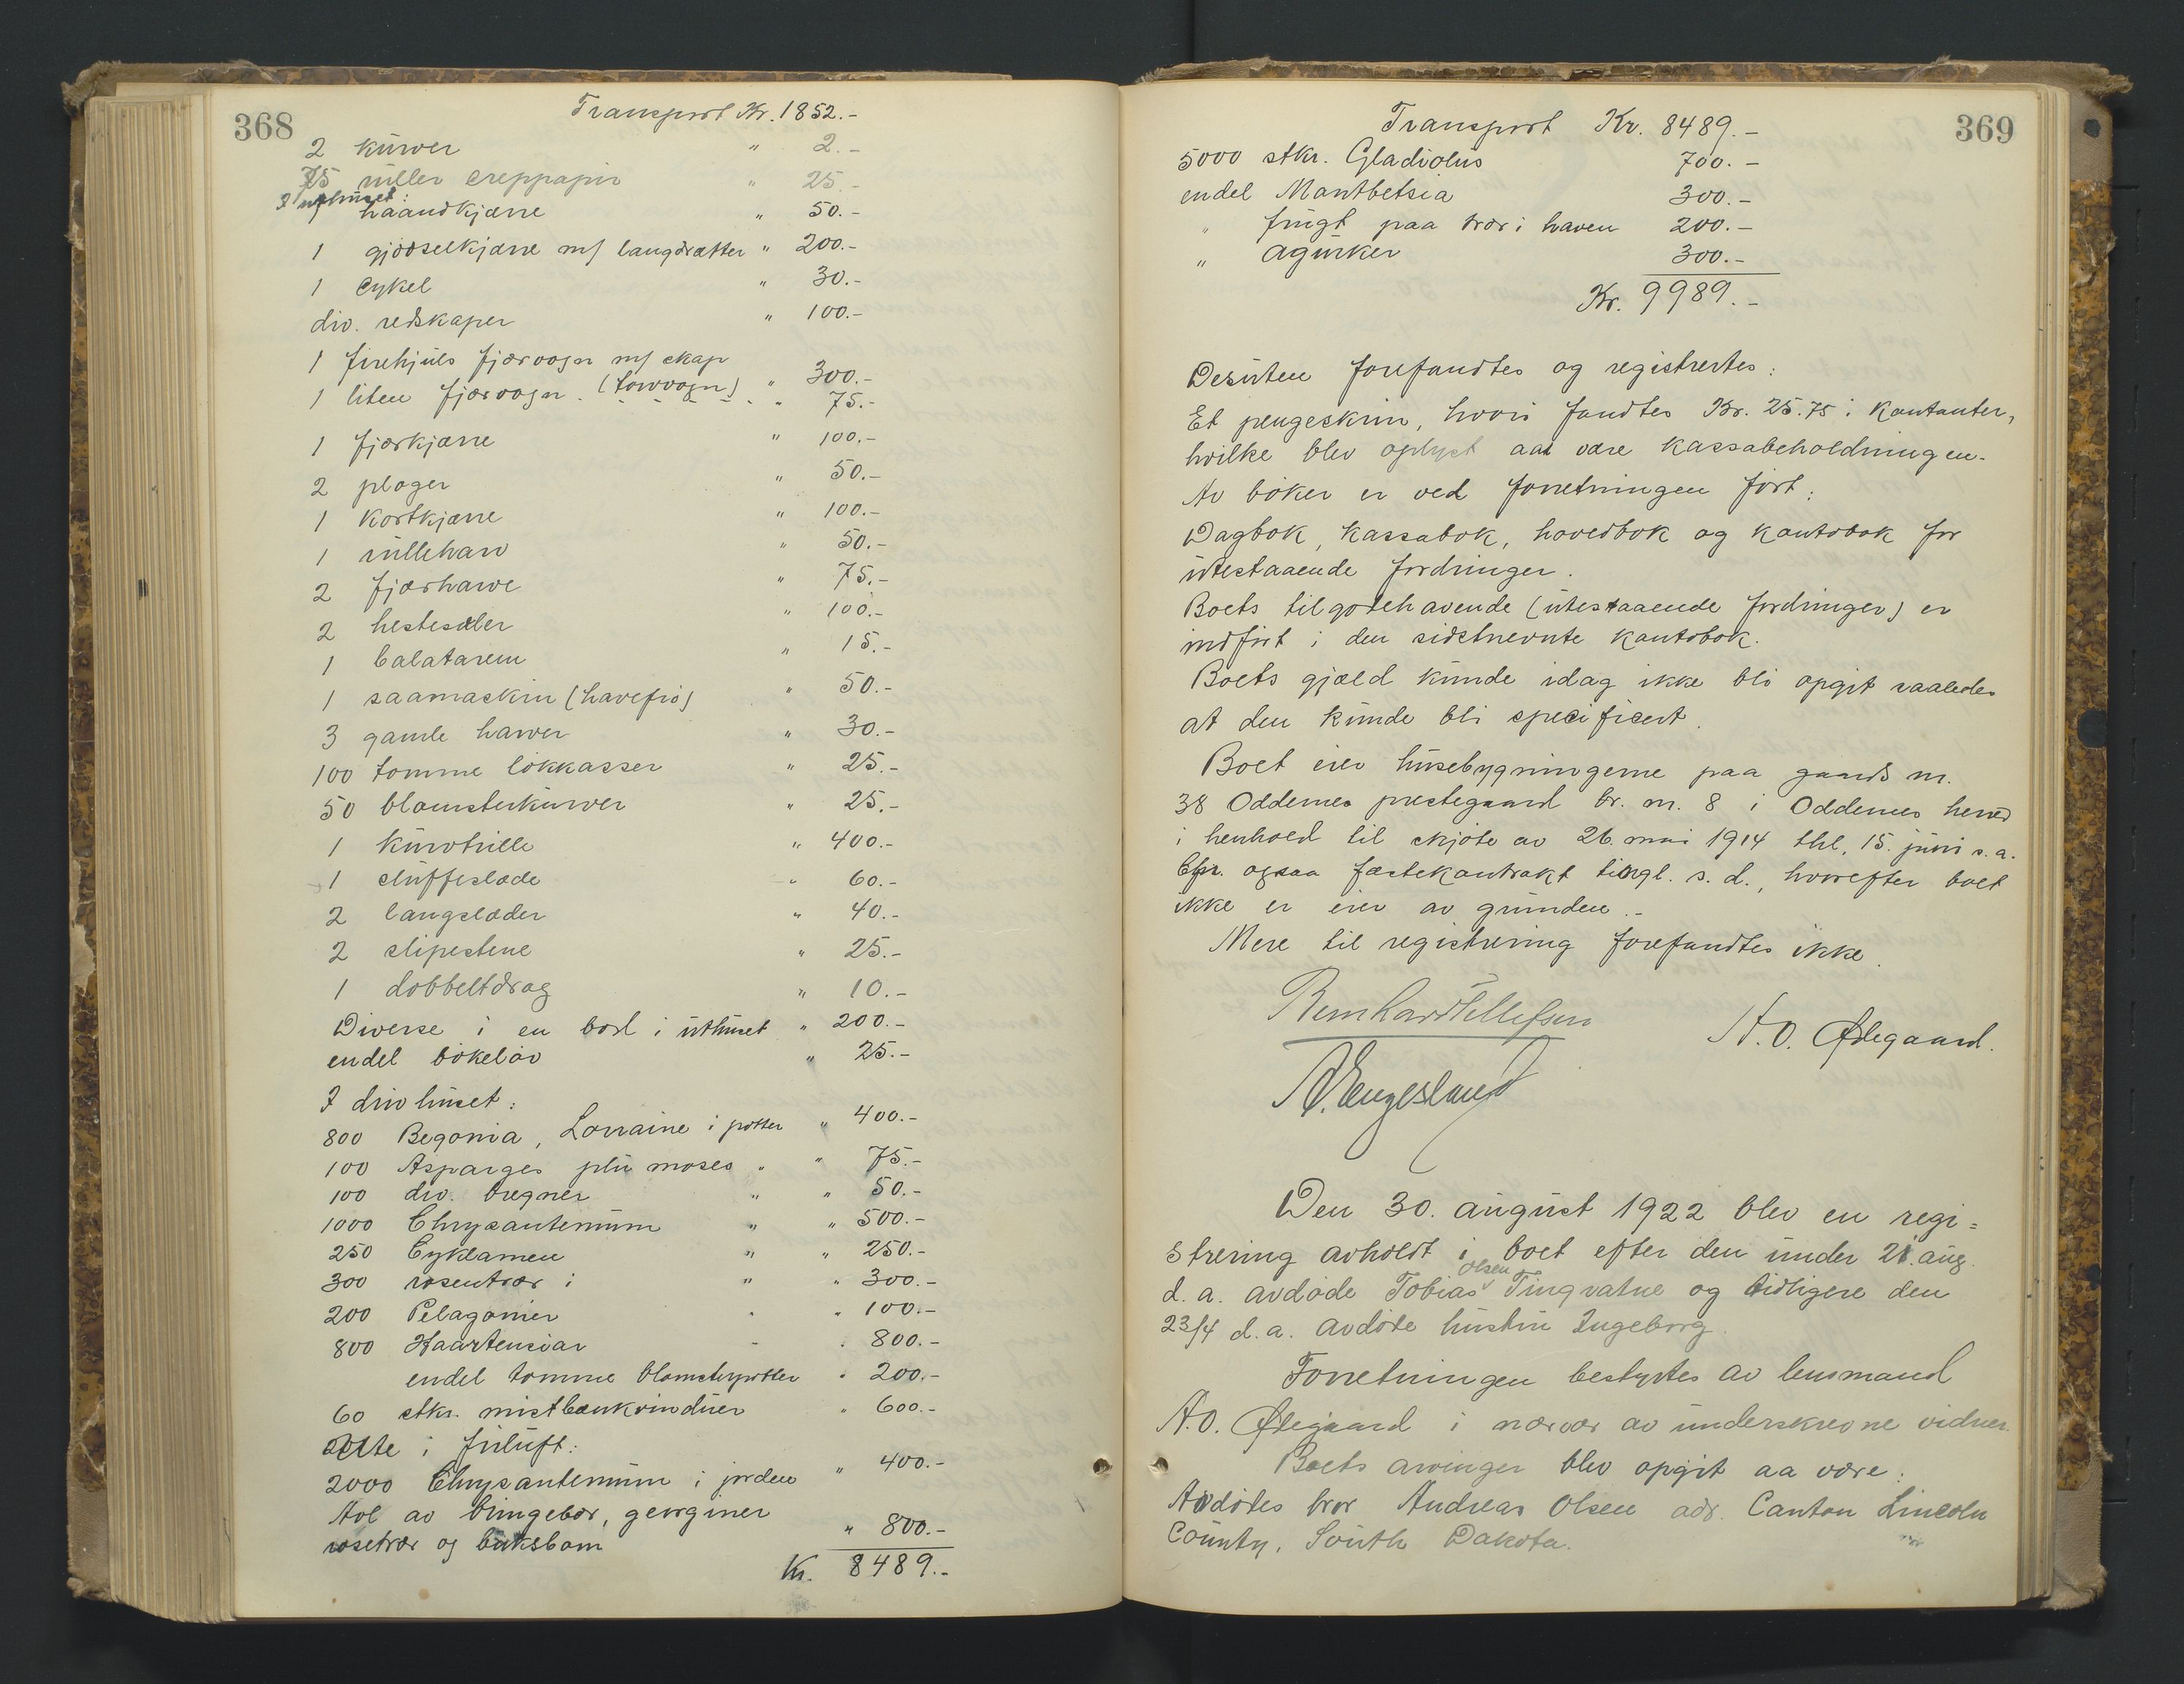 368
Transport Kr. 1852.-
2 kurver " 2.-
75 ruller creppapir " 25.-
I uthuset:
1 haandkjærre " 50.-
1 gjødselkjærre m/ langdrætter " 200.-
1 Cykel " 30.-
div. redskaper " 100.-
1 firehjuls fjærvogn m/ skap " 300.-
1 liten fjærvogn (torvvogn) " 75.-
1 fjærkjærre " 100.-
2 ploger " 50.-
1 Kortkjærre " 100.-
1 rulleharv " 50.-
2 fjærharve " 75.-
2 hesteseler " 100.-
1 balatarem " 15.-
1 saamaskin (havefrø) " 50.-
3 gamle harver " 30.-
100 tomme løkkasser " 25.-
50 blomsterkurver " 25.-
1 Kurvtrille " 400.-
1 sluffeslæde " 60.-
2 langslæder " 40.-
2 slipestene " 25.-
1 dobbeltdrag " 10.-
Diverse i en bod i uthuset " 200.-
endel bøkeløv " 25.-
I drivhuset:
800 Begonia, Lorraine i potter " 400.-
100 Asparges plumoses " " 75.-
100 div. bregner " " 50.-
1000 Chrysantemum " " 500.-
250 Cyklamen " " 250.-
300 rosentrær i " " 300.-
200 Pelagonier " " 100.-
800 Haartensiar " " 800.-
endel tomme blomsterpotter " 200.-
60 stkr. mistbænkvinduer " 600.-
Ute i friluft:
2000 Chrysantemum i jorden " 400.-
Avl av bringebær, georginer
rosetrær og buksbom " 800.-
Kr. 8489.-
369
Transport Kr. 8489.-
5000 stkr. Gladiolus 700.-
endel Mantbetsia 300.-
" frugt paa trær i haven 200.-
" agurker 300.-
Kr. 9989.-
Desuten forefandtes og registrertes:
Et pengeskrin, hvori fandtes Kr. 25.75 i kontanter,
hvilke blev oplyst aa være Kassabeholdningen.
Av bøker er ved forretningen ført:
Dagbok, Kassabok, hovedbok og kontobok for
utestaaende fordringer.
Boets tilgodehavende (utestaaende fordringer) er
indført i den sidstnevnte kontobok.
Boets gjæld kunde idag ikke bli opgit saaledes
at den kunde bli specificert.
Boet eier husebygningerne paa gaards nr.
38 Oddernes prestegaard br. nr. 8 i Oddernes herred
i henhold til skjøte av 26. mai 1914 thl. 15. juni s. a.
Cfr. ogsaa festekontrakt tingl. s. d., hvorefter boet
ikke er eier av grunden.-
Mere til registrering forefandtes ikke.
Bernhard Tellefsen
A. O. Ødegaard.
A. Engesland
Den 30. august 1922 blev en regi=
strering avholdt i boet efter den under 21. aug.
d. a. avdøde Tobias Olsen Tingvatne og tidligere den
23/4 d. a. avdøde hustru Ingeborg.
Forretningen bestyrtes av lensmand
A. O. Ødegaard i nærvær av underskrevne vidner.
Boets arvinger blev opgit aa være:
Avdødes bror Andreas Olsen adr. Canton Lincoln
County, South Dakota.